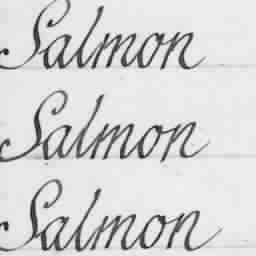 Salmon
Salmon
Salmon